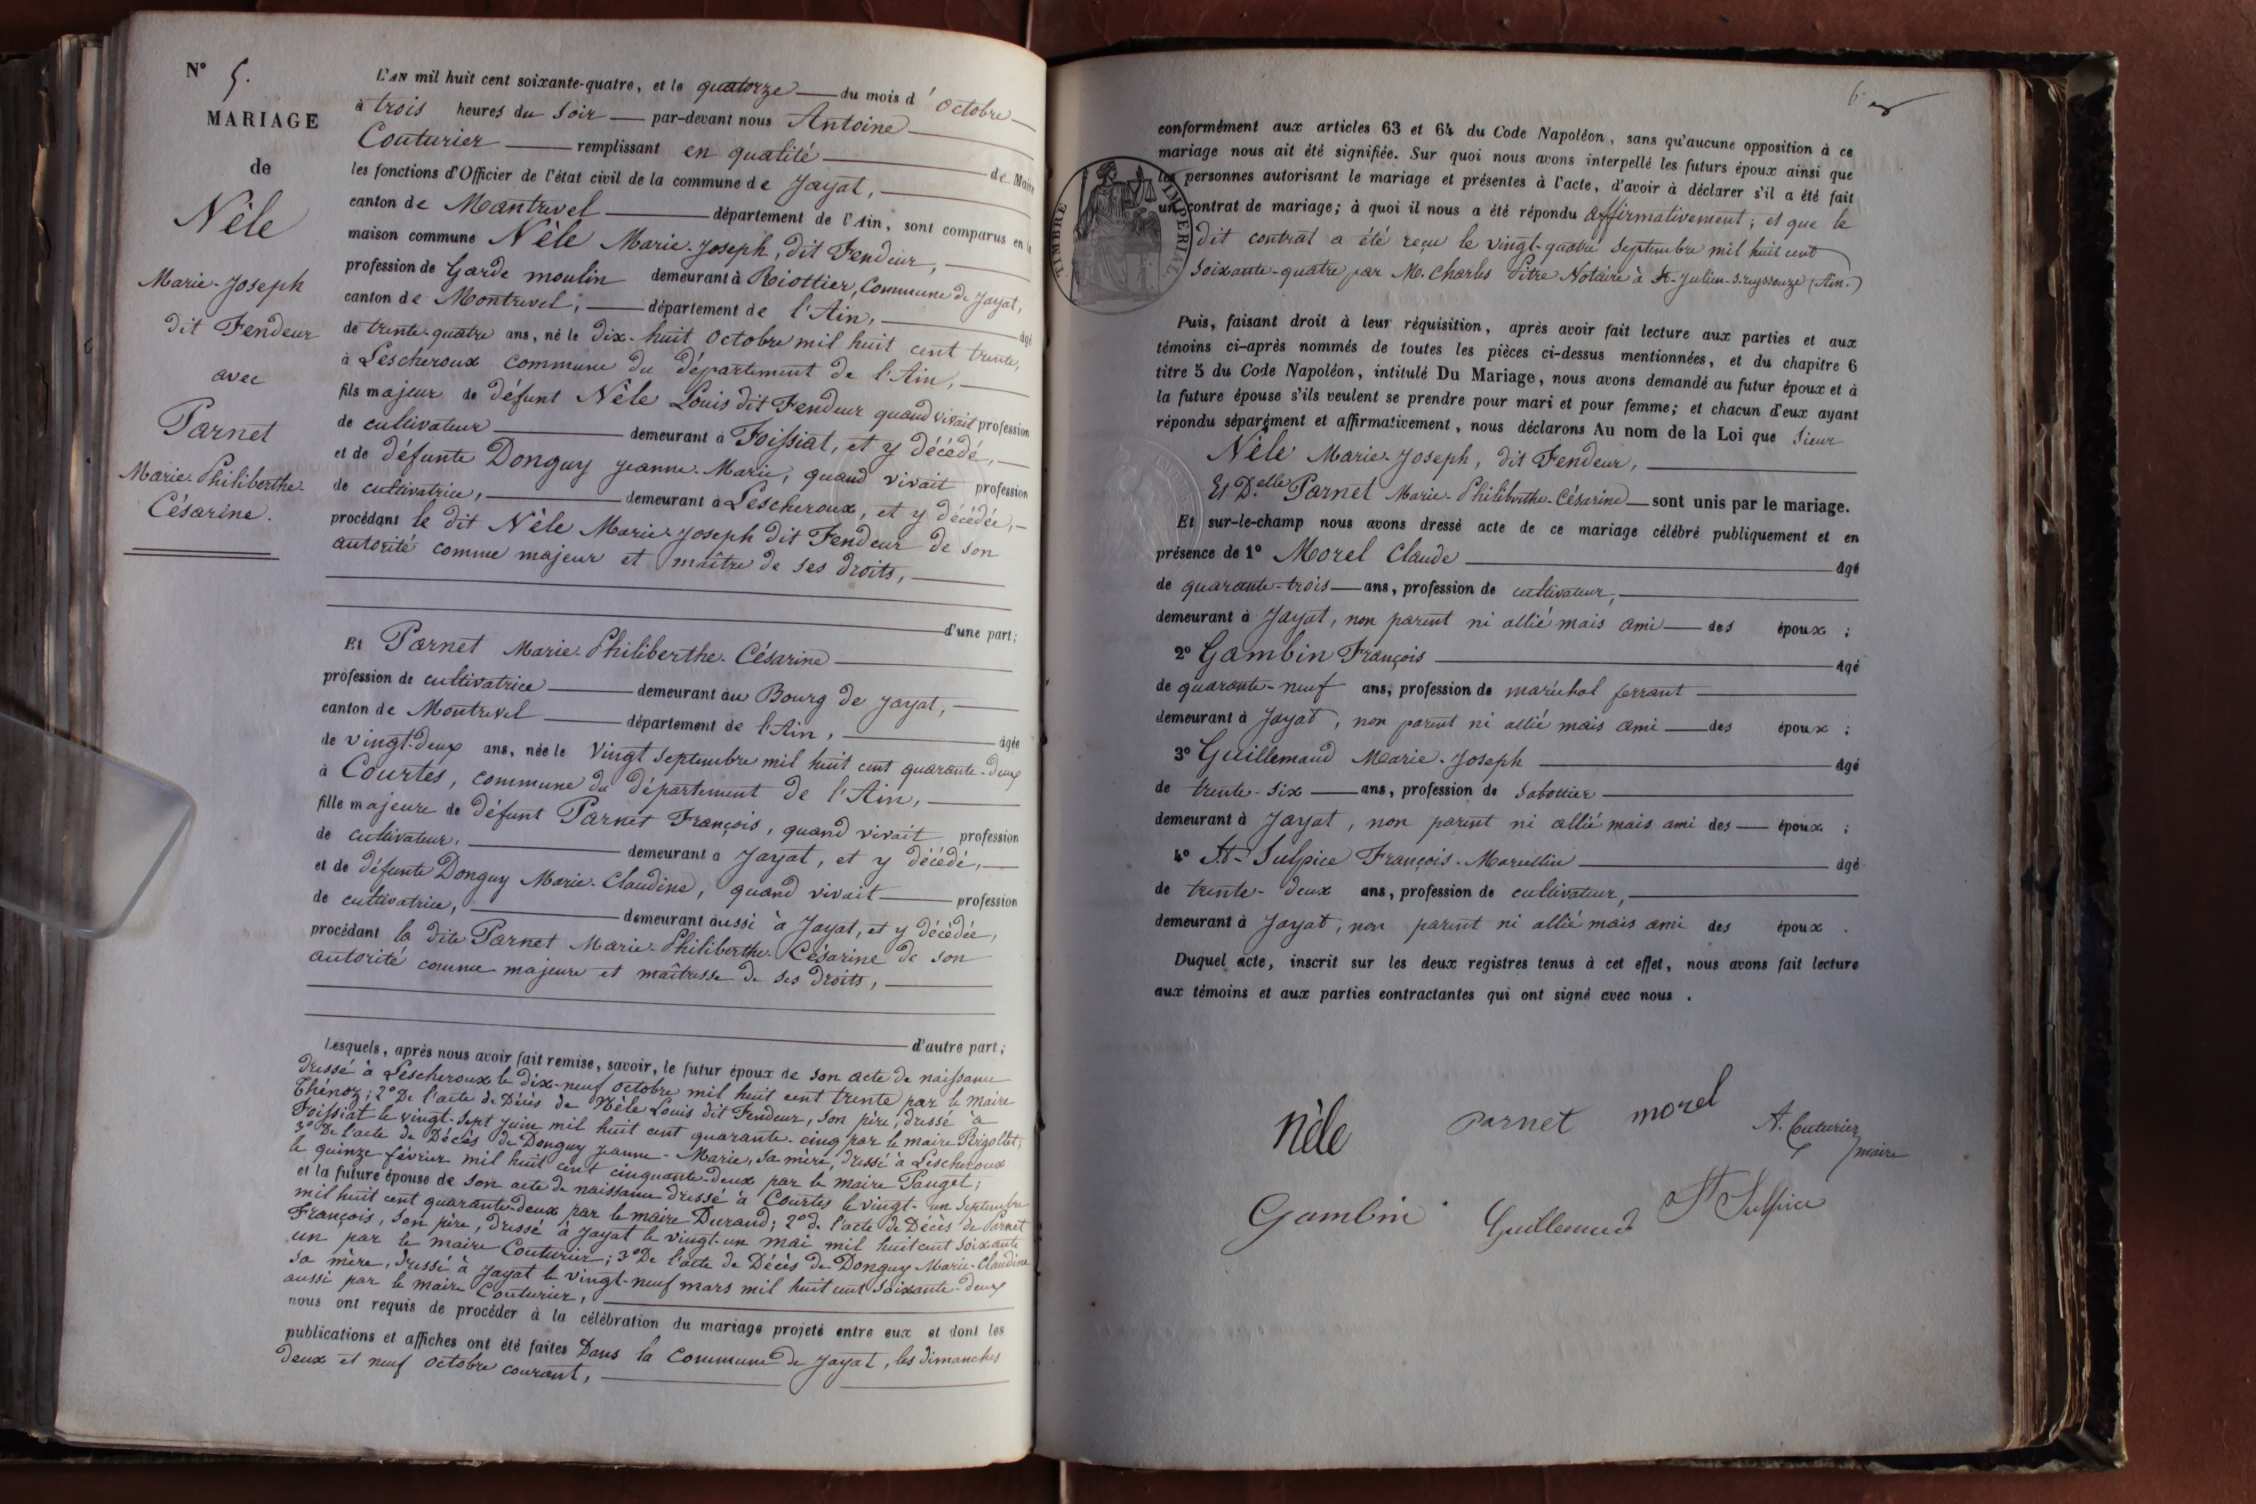 N° 5.
MARIAGE
de
Nèle
Marie-Joseph
dit Fendeur
avec
Parnet
Marie-Philiberthe-
Césarine.
L'AN mil huit cent soixante-quatre, et le quatorze du mois d'Octobre
à trois heures du soir par-devant nous Antoine
Couturier remplissant en qualité de Maire
les fonctions d'Officier de l'état civil de la commune de Jayat,
canton de Montrevel département de l'Ain, sont comparus en la
maison commune Nèle Marie-Joseph, dit Fendeur,
profession de Garde moulin demeurant à Riottier, Commune de Jayat,
canton de Montrevel, département de l'Ain, âgé
de trente-quatre ans, né le dix-huit Octobre mil huit cent trente,
à Lescheroux commune du département de l'Ain,
fils majeur de défunt Nèle Louis dit Fendeur quand vivait profession
de cultivateur demeurant à Foissiat, et y décédé,
et de défunte Donguy Jeanne-Marie, quand vivait profession
de cultivatrice, demeurant à Lescheroux, et y décédée,
procédant le dit Nèle Marie-Joseph dit Fendeur de son
autorité comme majeur et maître de ses droits,
d'une part;
Et Parnet Marie-Philiberthe-Césarine
profession de cultivatrice demeurant au Bourg de Jayat,
canton de Montrevel département de l'Ain, âgée
de vingt-deux ans, née le vingt septembre mil huit cent quarante-deux
à Courtes, commune du département de l'Ain,
fille majeure de défunt Parnet François, quand vivait profession
de cultivateur, demeurant à Jayat, et y décédé,
et de défunte Donguy Marie-Claudine, quand vivait profession
de cultivatrice, demeurant aussi à Jayat, et y décédée,
procédant la dite Parnet Marie-Philiberthe-Césarine de son
autorité comme majeure et maîtresse de ses droits,
d'autre part;
Lesquels, après nous avoir fait remise, savoir, le futur époux de son acte de naissance
dressé à Lescheroux le dix-neuf octobre mil huit cent trente par le maire
Thénoz; 2° De l'acte de Décès de Nèle Louis dit Fendeur, son père, dressé à
Foissiat le vingt-sept juin mil huit cent quarante-cinq par le maire Brigollet;
3° De l'acte de Décès de Donguy Jeanne-Marie, sa mère, dressé à Lescheroux
le quinze février mil huit cent cinquante-deux par le maire Pauget;
et la future épouse de son acte de naissance dressé à Courtes le vingt-un septembre
mil huit cent quarante-deux par le maire Durand; 2° de l'acte de Décès de Parnet
François, son père, dressé à Jayat le vingt-un mai mil huit cent soixante
un par le maire Couturier; 3° De l'acte de Décès de Donguy Marie-Claudine
sa mère, dressé à Jayat le vingt-neuf mars mil huit cent soixante-deux
aussi par le maire Couturier,
nous ont requis de procéder à la célébration du mariage projeté entre eux et dont les
publications et affiches ont été faites Dans la Commune de Jayat, les dimanches
deux et neuf octobre courant,
6
conformément aux articles 63 et 64 du Code Napoléon, sans qu'aucune opposition à ce
mariage nous ait été signifiée. Sur quoi nous avons interpellé les futurs époux ainsi que
les personnes autorisant le mariage et présentes à l'acte, d'avoir à déclarer s'il a été fait
un contrat de mariage; à quoi il nous a été répondu affirmativement; et que le
dit contrat a été reçu le vingt-quatre septembre mil huit cent
soixante-quatre par M. Charles Pitre Notaire à St-Julien-s.reyssouze (Ain.)
TIMBRE IMPERIAL
Puis, faisant droit à leur réquisition, après avoir fait lecture aux parties et aux
témoins ci-après nommés de toutes les pièces ci-dessus mentionnées, et du chapitre 6
titre 5 du Code Napoléon, intitulé Du Mariage, nous avons demandé au futur époux et à
la future épouse s'ils veulent se prendre pour mari et pour femme; et chacun d'eux ayant
répondu séparément et affirmativement, nous déclarons Au nom de la Loi que sieur
Nèle Marie-Joseph, dit Fendeur,
Et D.elle Parnet Marie-Philiberthe-Césarine sont unis par le mariage.
Et sur-le-champ nous avons dressé acte de ce mariage célébré publiquement et en
présence de 1° Morel Claude âgé
de quarante-trois ans, profession de cultivateur,
demeurant à Jayat, non parent ni allié mais ami des époux ;
2° Gambin François âgé
de quarante-neuf ans, profession de maréchal ferrant
demeurant à Jayat, non parent ni allié mais ami des époux ;
3° Guillemaud Marie-Joseph âgé
de trente-six ans, profession de sabottier
demeurant à Jayat, non parent ni allié mais ami des époux ;
4° St-Sulpice François-Marcellin âgé
de trente-deux ans, profession de cultivateur,
demeurant à Jayat, non parent ni allié mais ami des époux .
Duquel acte, inscrit sur les deux registres tenus à cet effet, nous avons fait lecture
aux témoins et aux parties contractantes qui ont signé avec nous .
Nèle Parnet morel A. Couturier
maire
Gambin Guillemaud St Sulpice